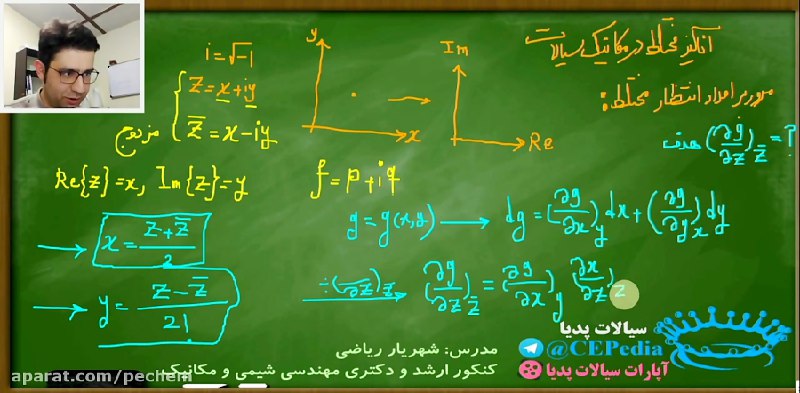 آنالیز مختلط در مکانیک سیالات
مرور بر اعداد مختلط:
هدف (∂g/∂z)z̅ = ?
i = √-1
z = x + iy
z̅ = x - iy
مزدوج
Re{z} = x, Im{z} = y
y
x
Im
Re
f = p + iq
g = g(x,y) → dg = (∂g/∂x)y dx + (∂g/∂y)x dy
→ x = (z + z̅)/2
→ y = (z - z̅)/2i
÷(∂z)z̅ → (∂g/∂z)z̅ = (∂g/∂x)y (∂x/∂z)z
سیالات پدیا
@CEPedia
آپارات سیالات پدیا
مدرس: شهریار ریاضی
کنکور ارشد و دکتری مهندسی شیمی و مکانیک
aparat.com/pechem